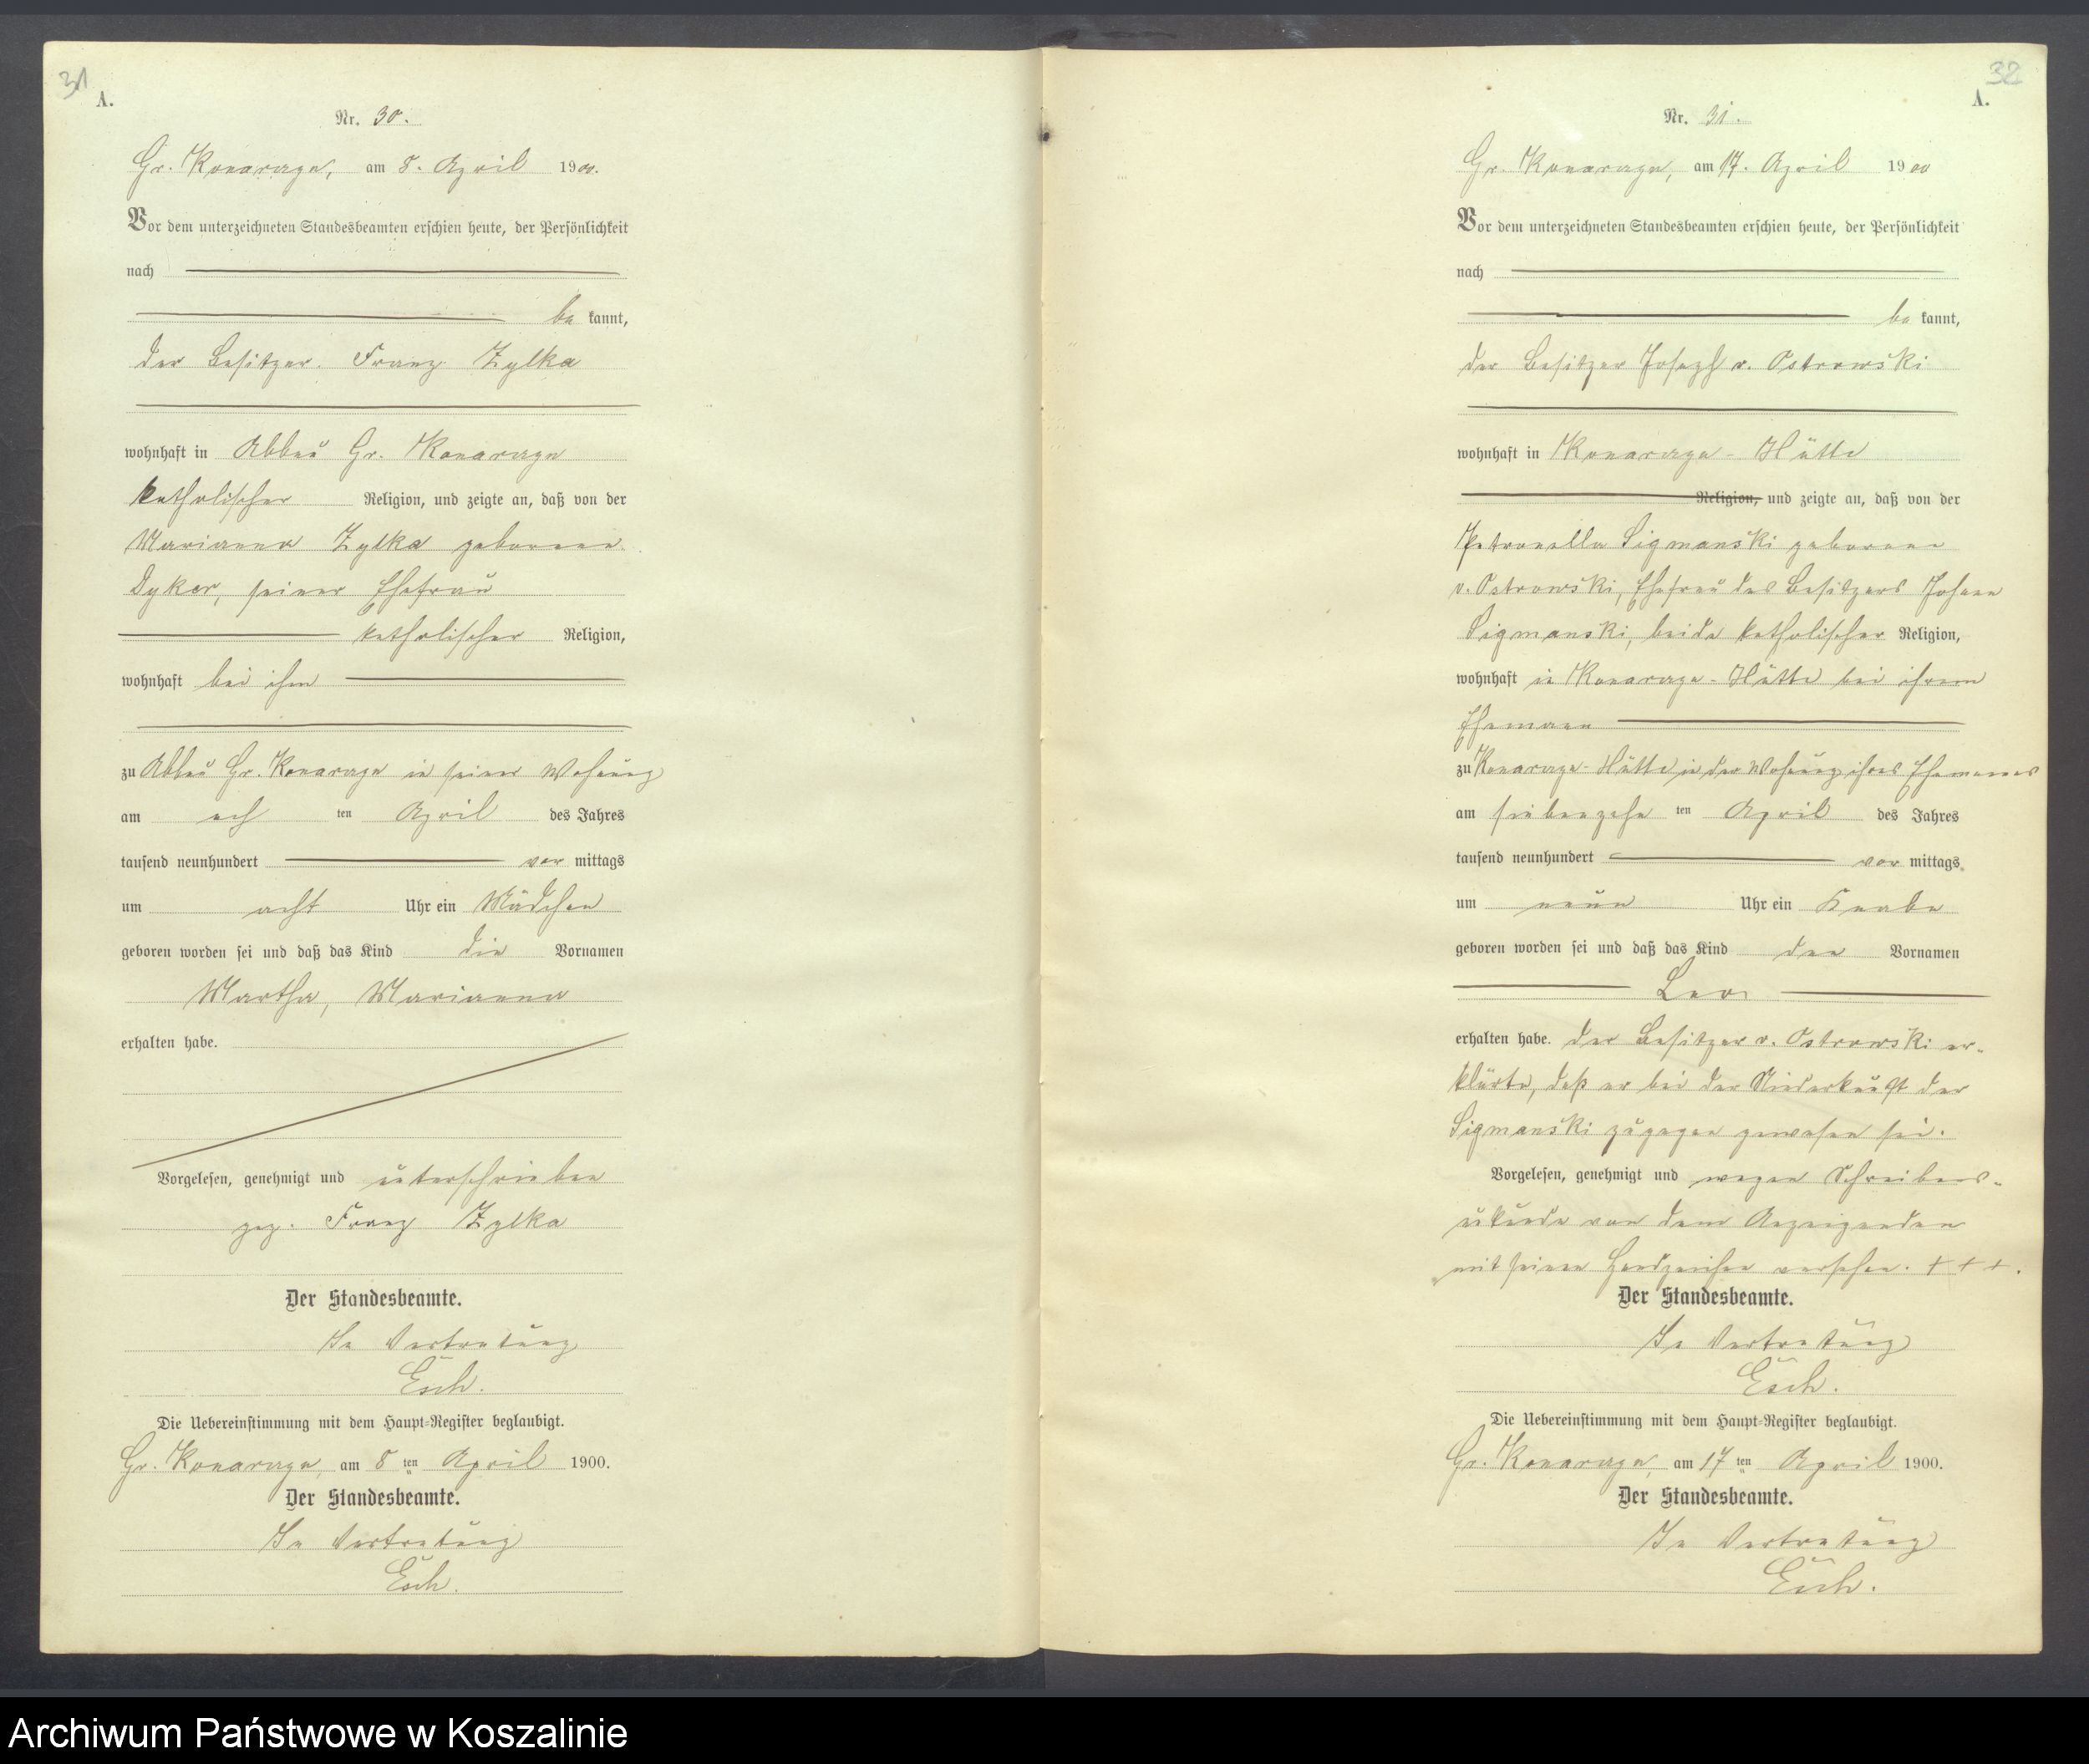 31
A.
Nr. 30.
Gr. Konarczyn, am 8. April 1900.
Vor dem unterzeichneten Standesbeamten erschien heute, der Persönlichkeit
nach
be kannt,
der Besitzer Franz Zylka
wohnhaft in Abbau Gr. Konarczyn
katholischer Religion, und zeigte an, daß von der
Marianna Zylka geborene
Dyker, seiner Ehefrau
katholischer Religion,
wohnhaft bei ihm
zu Abbau Gr. Konarczyn in seiner Wohnung
am ach ten April des Jahres
tausend neunhundert vor mittags
um acht Uhr ein Mädchen
geboren worden sei und daß das Kind die Vornamen
Martha, Marianna
erhalten habe.
Vorgelesen, genehmigt und unterschrieben
gez. Franz Zylka
Der Standesbeamte.
In Vertretung
Esch.
Die Uebereinstimmung mit dem Haupt-Register beglaubigt.
Gr. Konarczyn, am 8 ten April 1900.
Der Standesbeamte.
In Vertretung
Esch.
32
A.
Nr. 31.
Gr. Konarczyn, am 17. April 1900
Vor dem unterzeichneten Standesbeamten erschien heute, der Persönlichkeit
nach
be kannt,
der Besitzer Joseph v. Ostrowski
wohnhaft in Konarczyn-Hütte
Religion, und zeigte an, daß von der
Petronella Sigmanski geborene
v. Ostrowski, Ehefrau des Besitzers Johann
Sigmanski, beide katholischer Religion,
wohnhaft in Konarczyn-Hütte bei ihrem
Ehemann
zu Konarczyn-Hütte in der Wohnung ihres Ehemannes
am siebenzehn ten April des Jahres
tausend neunhundert vor mittags
um neun Uhr ein Knabe
geboren worden sei und daß das Kind den Vornamen
Leo
erhalten habe. Der Besitzer v. Ostrowski er-
klärte, daß er bei der Niederkunft der
Sigmanski zugegen gewesen sei.
Vorgelesen, genehmigt und wegen Schreibens-
unkunde von dem Anzeigenden
mit seinem Handzeichen versehen. + + +.
Der Standesbeamte.
In Vertretung
Esch.
Die Uebereinstimmung mit dem Haupt-Register beglaubigt.
Gr. Konarczyn, am 17 ten April 1900.
Der Standesbeamte.
In Vertretung
Esch.
Archiwum Państwowe w Koszalinie